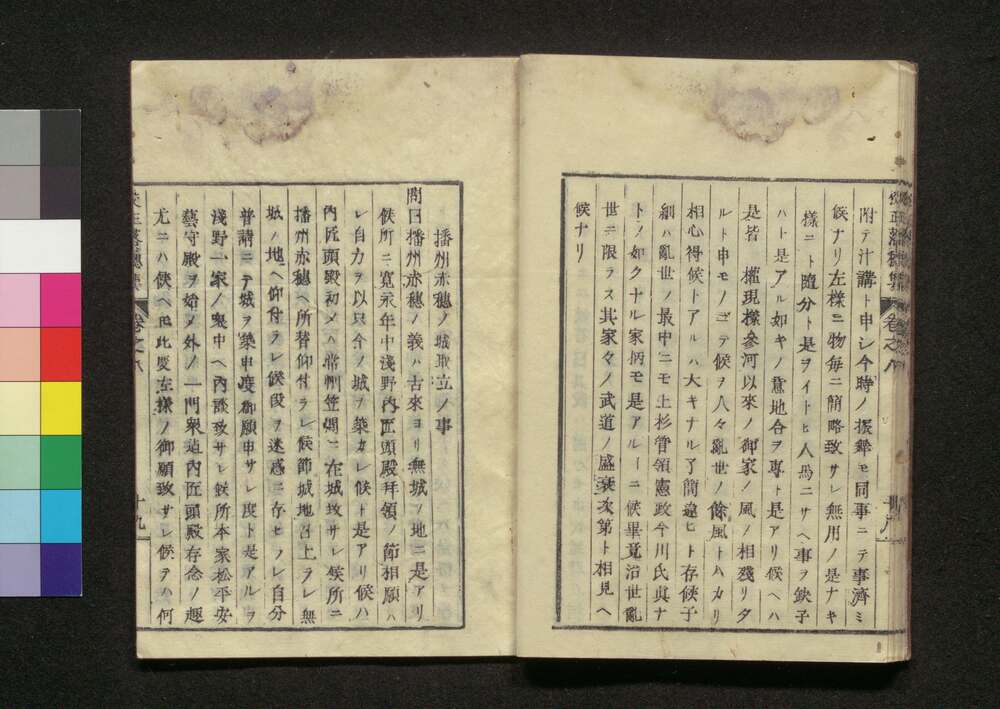 附テ汁講ト申シ今時ノ振舞モ同事ニテ事濟ミ
候ナリ左樣ニ物毎ニ簡略致サレ無用ノ是ナキ
樣ニト隨分ト是ヲイトヒ人馬ニサヘ事ヲ缺子
ハト是アル如キノ意地合ヲ專ト是アリ候ヘハ
是皆 權現樣參河以來ノ御家ノ風ノ相殘リタ
ルト申モノニテ候ヲ人々亂世ノ餘風トハカリ
相心得候トアルハ大キナル了簡違ヒト存候子
細ハ亂世ノ最中ニモ上杉管領憲政今川氏眞ナ
トノ如クナル家柄モ是アルーニ候畢竟治世亂
世ニ限ラス其家々ノ武道ノ盛衰次第ト相見ヘ
候ナリ
卷之八
十九
播州赤穗ノ城取立ノ事
問曰播州赤穗ノ義ハ古來ヨリ無城ノ地ニ是アリ
候所ニ寬永年中淺野內匠頭殿拜領ノ節相願ハ
レ自力ヲ以只今ノ城ヲ築カレ候ト是アリ候ハ
內匠頭殿初メハ常州笠間ニ在城致サレ候所ニ
播州赤穗ヘ所替仰付ラレ候節城地召上ラレ無
城ノ地ヘ仰付ラレ候段ヲ迷惑ニ存ヒノレ自分
普請ニテ城ヲ築申度御願申サレ度ト是アルヲ
淺野一家ノ衆中ヘ內談致サレ候所本家松平安
藝守殿ヲ始メ外ノ一門衆迠內匠頭殿存念ノ趣
尤ニハ候ヘモ此度左樣ノ御願致サレ候テハ何
卷之八
十九